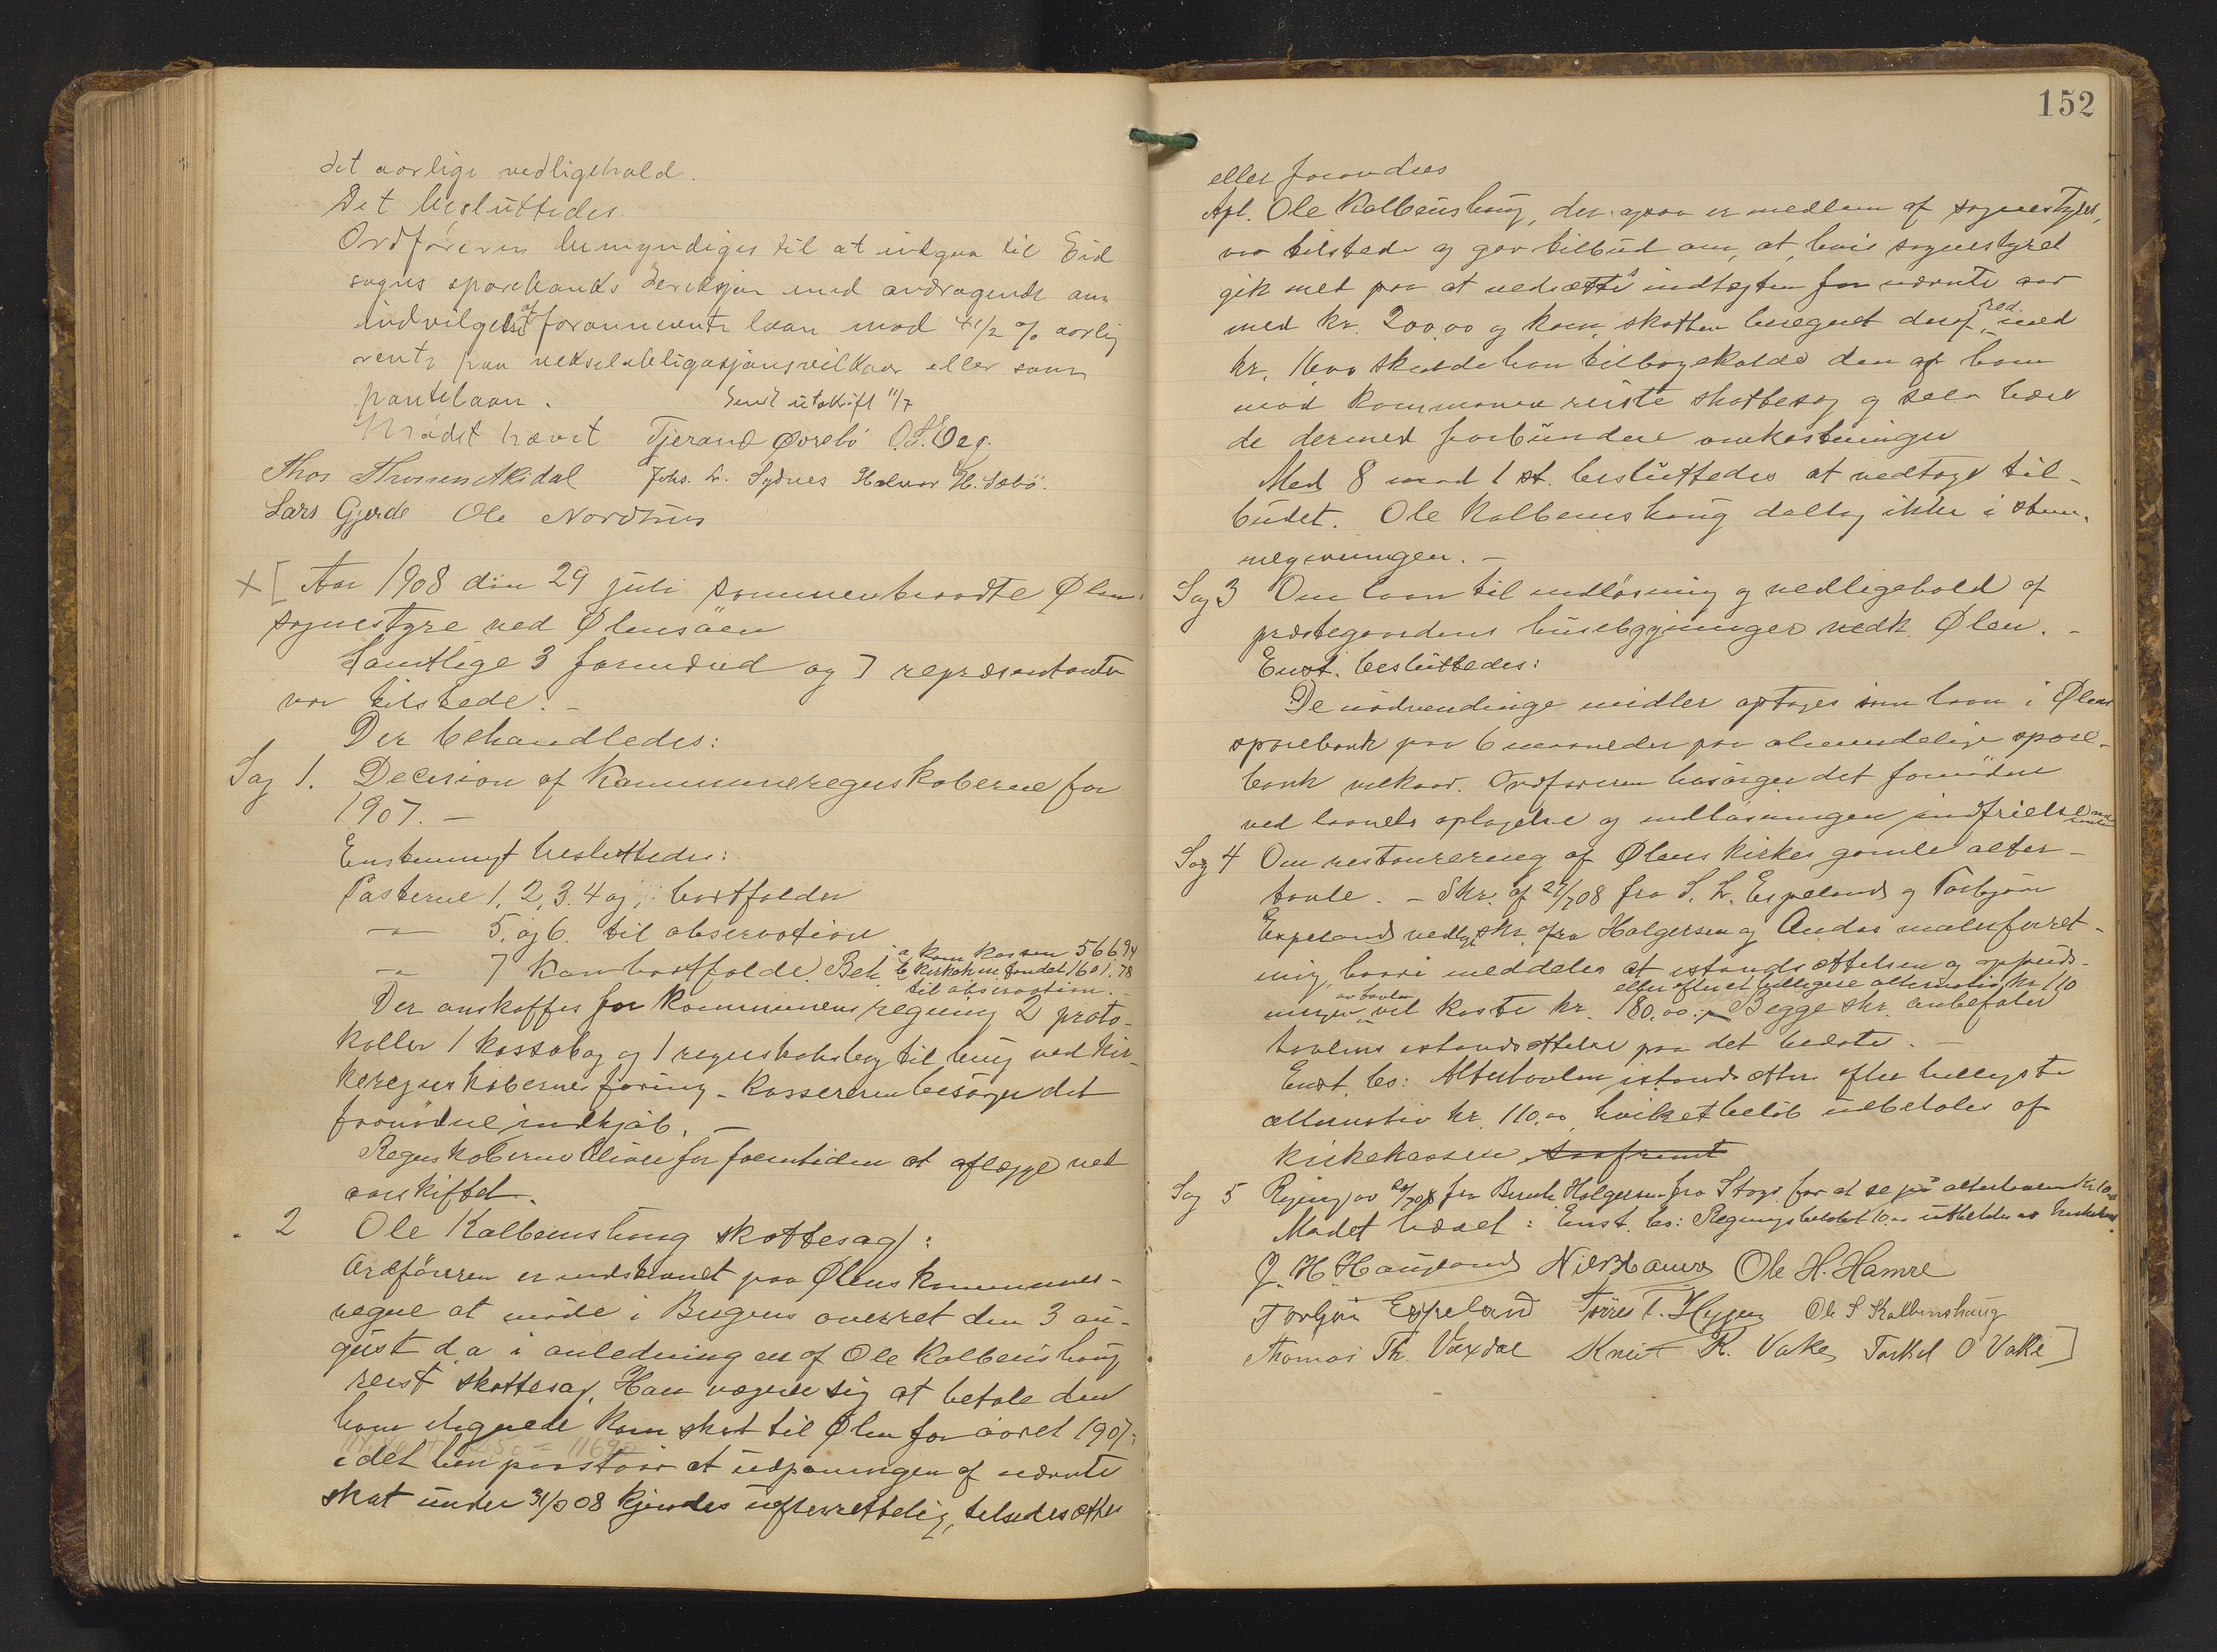 det aarlige vedligehold.
Det besluttedes.
Ordføreren bemyndiges til at indgaa til Eid
sogns sparebanks dereksjon med andragende om
indvilgelse af forannevnte laan mod 4 1/2 % aarlig
rente paa vekselobligasjonsvilkaar eller som
pantelaan. Sendt utskrift 11/7
Mødet hævet Tjerand Øvrebö O.S. Eeg.
Thos Thomsen Akidal Johs. L. Sydnes Halvor H. Søbö.
Lars Gjerde Ole Nordhus
× [ Aar 1908 den 29 juli sammentraadte Ølens
sognestyre ved Ølensöen
Samtlige 3 formænd og 7 repræsentanter
var tilstede. –
Der behandledes:
Sag 1. Decision af Kommuneregnskaberne for
1907. –
Enstemmigt besluttedes:
Posterne 1, 2, 3. 4 og bortfalder
–"– 5. og 6. til observation
–"– 7 kan bortfalde. Beh. a kom kassen 566,94
b kirkekm fondet 1601.78
til observation. –
Der anskaffes for kommunens regning 2 proto-
koller 1 kassabog og 1 regnskabsbog til brug ved kir-
keregnskabernes föring – Kassereren besörger det
fornödne indkjöb. –
Regnskaberne bliver for fremtiden at aflægge ved
aarskiftet.
. 2 Ole Kalbeinshaug skattesag:
Ordföreren er indstevnet paa Ølens kommunes-
vegne at möde i Bergens overret den 3 au-
gust d. a. i anledning en af Ole Kalbeinshaug
reist skattesag. Han vægrer sig at betale den
ham ilignede kom skat til Ølen for aaret 1907;
idet han paastaar at udpaningen af nævnte
skat under 31/3 08 kjendes uefterrettelig, tilsidesættes
152
eller forandres
Apl. Ole Kalbeinshaug, der ogsaa er medlem af sognestyret,
var tilstede og gav tilbud om, at, hvis sognestyret
gik med paa at nedsætte indtægten for nævnte aar
med kr. 200,00 og kom. skatten beregnet deraf red. med
kr. 16,00 skulde han tilbagekalde den af ham
mod kommunen reiste skattesag og selv bære
de dermed forbundene omkostninger
Med 8 mod 1 st. besluttedes at vedtage til-
budet. Ole Kalbeinshaug deltog ikke i stem-
megivningen. –
Sag 3 Om laan til indlösning og vedligehold af
præstegaardens husebygninger vedk. Ølen. –
Enst. besluttedes:
De nödvendige midler optages som laan i Ølens
sparebank paa 6 maaneder paa almindelige spare-
bank vilkaar. Ordføreren besörger det fornödne
ved laanets optagelse og indlösningen indfrielse
Sag 4 Om restaurering af Ølens kirkes gamle alter-
tavle. – Skr. af 27/7 08 fra S. L. Espeland og Torbjörn
Espeland vedlagt skr. fra Holgersen og Andas malerforret-
ning, hvori meddeles at istandsættelsen og oppuds-
ningen av tavlen vil koste kr. 180.00. eller efter et billigere alternativ kr 110 Begge skr. anbefaler
tavlens istandsættelse paa det bedste. –
Enst. bes: Altertavlen istandsættes efter billigste
alternativ kr. 110.00 hvilket belöb udbetales af
kirkekassen saafremt
Sag 5 Regning av 20/7 08 fra Bernh. Holgersen fra Stogs. for at se på altertavlen kr 10,00
Mödet hævet: Enst. bes: Regningsbelöbet 10.00 utbetales av kirkekas.
J. H. Haugland Nils Hamre Ole H. Hamre
Torbjörn Espeland Törres T. Hygen Ole S Kalbenshaug
Thomas Th. Vaxdal Knut K. Vake Torkel O Vake ]